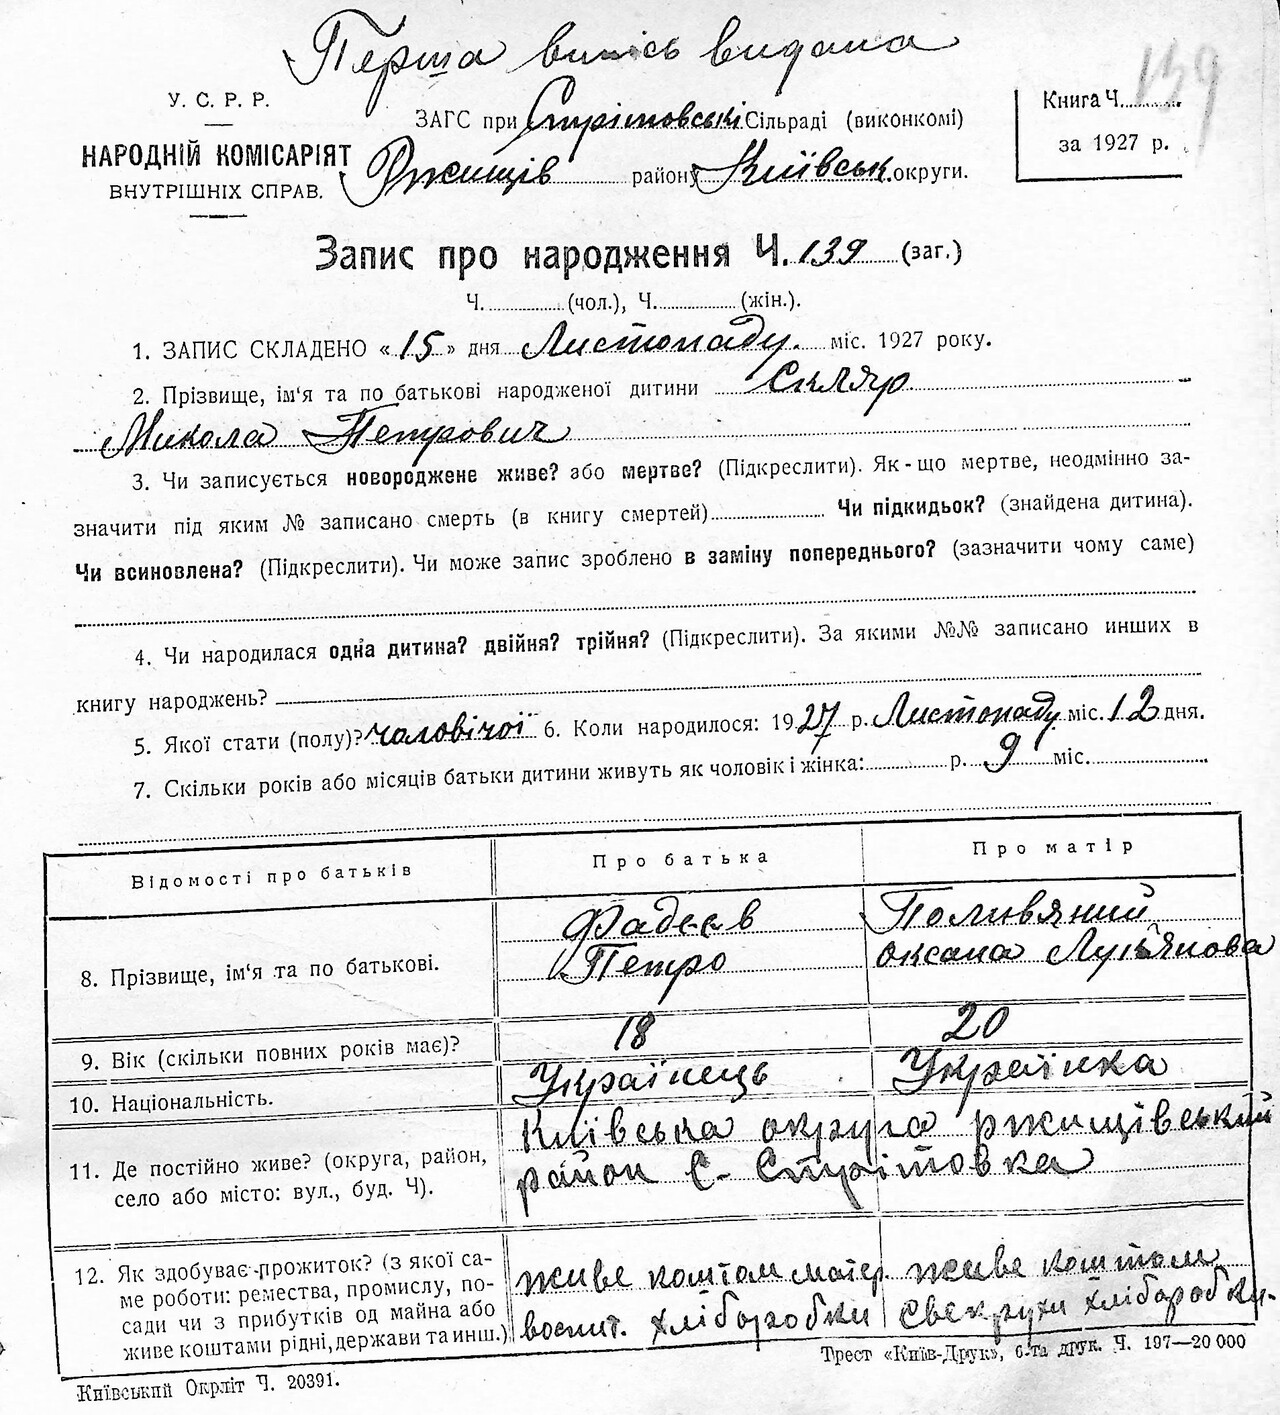 Перша випись видана
139
У. С. Р. Р.
НАРОДНІЙ КОМІСАРІЯТ
ВНУТРІШНІХ СПРАВ.
ЗАГС при Стрітовські Сільраді (виконкомі)
Ржищів району Київськ. округи.
Книга Ч.
за 1927 р.
Запис про народження Ч. 139 (заг.)
Ч. (чол.), Ч. (жін.).
1. ЗАПИС СКЛАДЕНО «15» дня Листопаду. міс. 1927 року.
2. Прізвище, ім'я та по батькові народженої дитини Скляр
Микола Петрович
3. Чи записується новороджене живе? або мертве? (Підкреслити). Як-що мертве, неодмінно за-
значити під яким № записано смерть (в книгу смертей) Чи підкидьок? (знайдена дитина).
Чи всиновлена? (Підкреслити). Чи може запис зроблено в заміну попереднього? (зазначити чому саме)
4. Чи народилася одна дитина? двійня? трійня? (Підкреслити). За якими №№ записано инших в
книгу народжень?
5. Якої стати (полу)? чоловічої 6. Коли народилося: 1927 р. Листопаду міс. 12 дня.
7. Скільки років або місяців батьки дитини живуть як чоловік і жінка: р. 9 міс.
Відомості про батьків
Про батька
Про матір
8. Прізвище, ім'я та по батькові.
Фадєєв
Петро
Полив'яний
оксана Лук'янова
9. Вік (скільки повних років має)?
18
20
10. Національність.
Українець
Українка
11. Де постійно живе? (округа, район,
село або місто: вул., буд. Ч).
Київська округа ржищівський
район С- Стрітовка
12. Як здобуває прожиток? (з якої са-
ме роботи: ремества, промислу, по-
сади чи з прибутків од майна або
живе коштами рідні, держави та инш.)
живе коштом матер.
воспит. хліборобки
живе коштом
свекрухи хліборобки.
Київський Окрліт Ч. 20391.
Трест «Київ-Друк», 6-та друк. Ч. 197—20 000